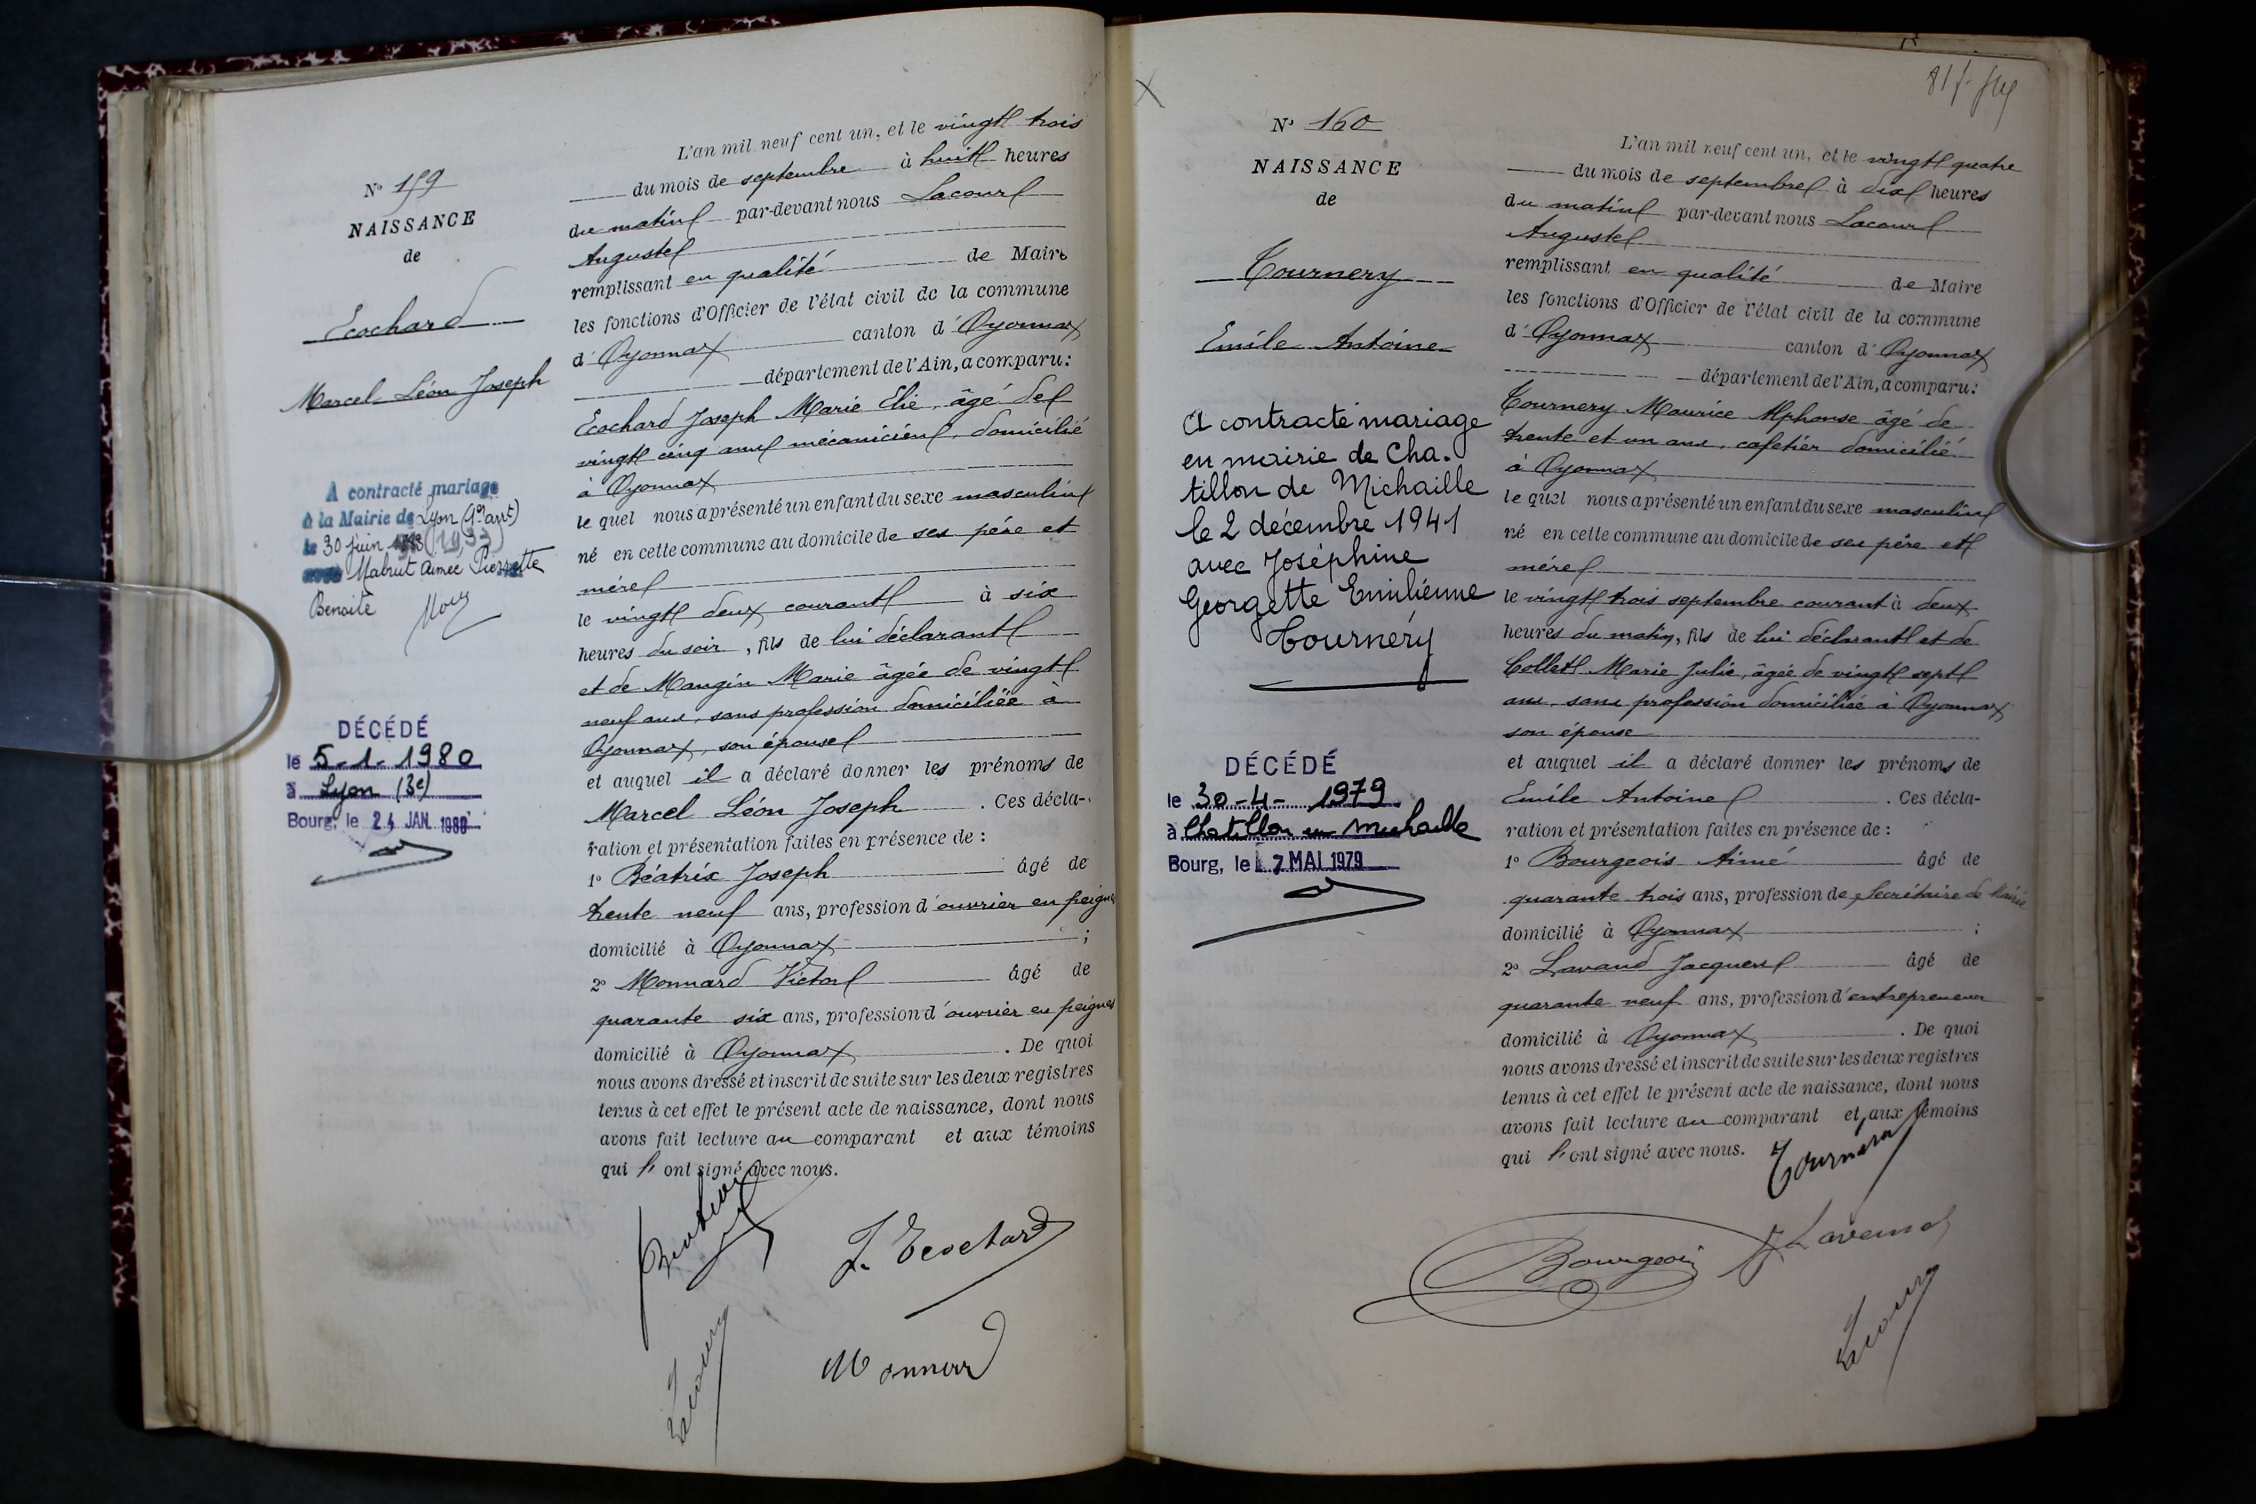 N° 159
NAISSANCE
de
Ecochard
Marcel Léon Joseph
A contracté mariage
à la Mairie de Lyon (4e arrt)
le 30 juin (1933)
avec Mabrut Aimée Pierrette
Benoite
DÉCÉDÉ
le 5-1-1980
à Lyon (3e)
Bourg, le 24 JAN. 1980
L'an mil neuf cent un, et le vingt trois
du mois de septembre à huit heures
du matin par-devant nous Lacour
Auguste
remplissant en qualité de Maire
les fonctions d'Officier de l'état civil de la commune
d'Oyonnax canton d'Oyonnax
département de l'Ain, a comparu:
Ecochard Joseph Marie Elie, âgé de
vingt cinq ans mécanicien, domicilié
à Oyonnax
le quel nous a présenté un enfant du sexe masculin
né en cette commune au domicile de ses père et
mère
le vingt deux courant à six
heures du soir, fils de lui déclarant
et de Mangin Marie âgée de vingt
neuf ans, sans profession domiciliée à
Oyonnax, son épouse
et auquel il a déclaré donner les prénoms de
Marcel Léon Joseph. Ces décla-
ration et présentation faites en présence de :
1° Béatrix Joseph âgé de
trente neuf ans, profession d'ouvrier en peignes
domicilié à Oyonnax ;
2° Monnard Victor âgé de
quarante six ans, profession d'ouvrier en peignes
domicilié à Oyonnax. De quoi
nous avons dressé et inscrit de suite sur les deux registres
tenus à cet effet le présent acte de naissance, dont nous
avons fait lecture au comparant et aux témoins
qui l'ont signé avec nous.
J. Ecochard
Monnard
N° 160
NAISSANCE
de
Tournery
Emile Antoine
A contracté mariage
en mairie de Cha-
tillon de Michaille
le 2 décembre 1941
avec Joséphine
Georgette Emilienne
Tournery
DÉCÉDÉ
le 30-4-1979
à Chatillon en Michaille
Bourg, le 7 MAI 1979
L'an mil neuf cent un, et le vingt quatre
du mois de septembre à dix heures
du matin par-devant nous Lacour
Auguste
remplissant en qualité de Maire
les fonctions d'Officier de l'état civil de la commune
d'Oyonnax canton d'Oyonnax
département de l'Ain, a comparu:
Tournery Maurice Alphonse âgé de
trente et un ans, cafetier domicilié
à Oyonnax
le quel nous a présenté un enfant du sexe masculin
né en cette commune au domicile de ses père et
mère
le vingt trois septembre courant à deux
heures du matin, fils de lui déclarant et de
Collet Marie Julie, âgée de vingt sept
ans, sans profession domiciliée à Oyonnax
son épouse
et auquel il a déclaré donner les prénoms de
Emile Antoine. Ces décla-
ration et présentation faites en présence de :
1° Bourgeois Aimé âgé de
quarante trois ans, profession de Secrétaire de Mairie
domicilié à Oyonnax ;
2° Lavand Jacques âgé de
quarante neuf ans, profession d'entrepreneur
domicilié à Oyonnax. De quoi
nous avons dressé et inscrit de suite sur les deux registres
tenus à cet effet le présent acte de naissance, dont nous
avons fait lecture au comparant et aux témoins
qui l'ont signé avec nous.
Bourgeois